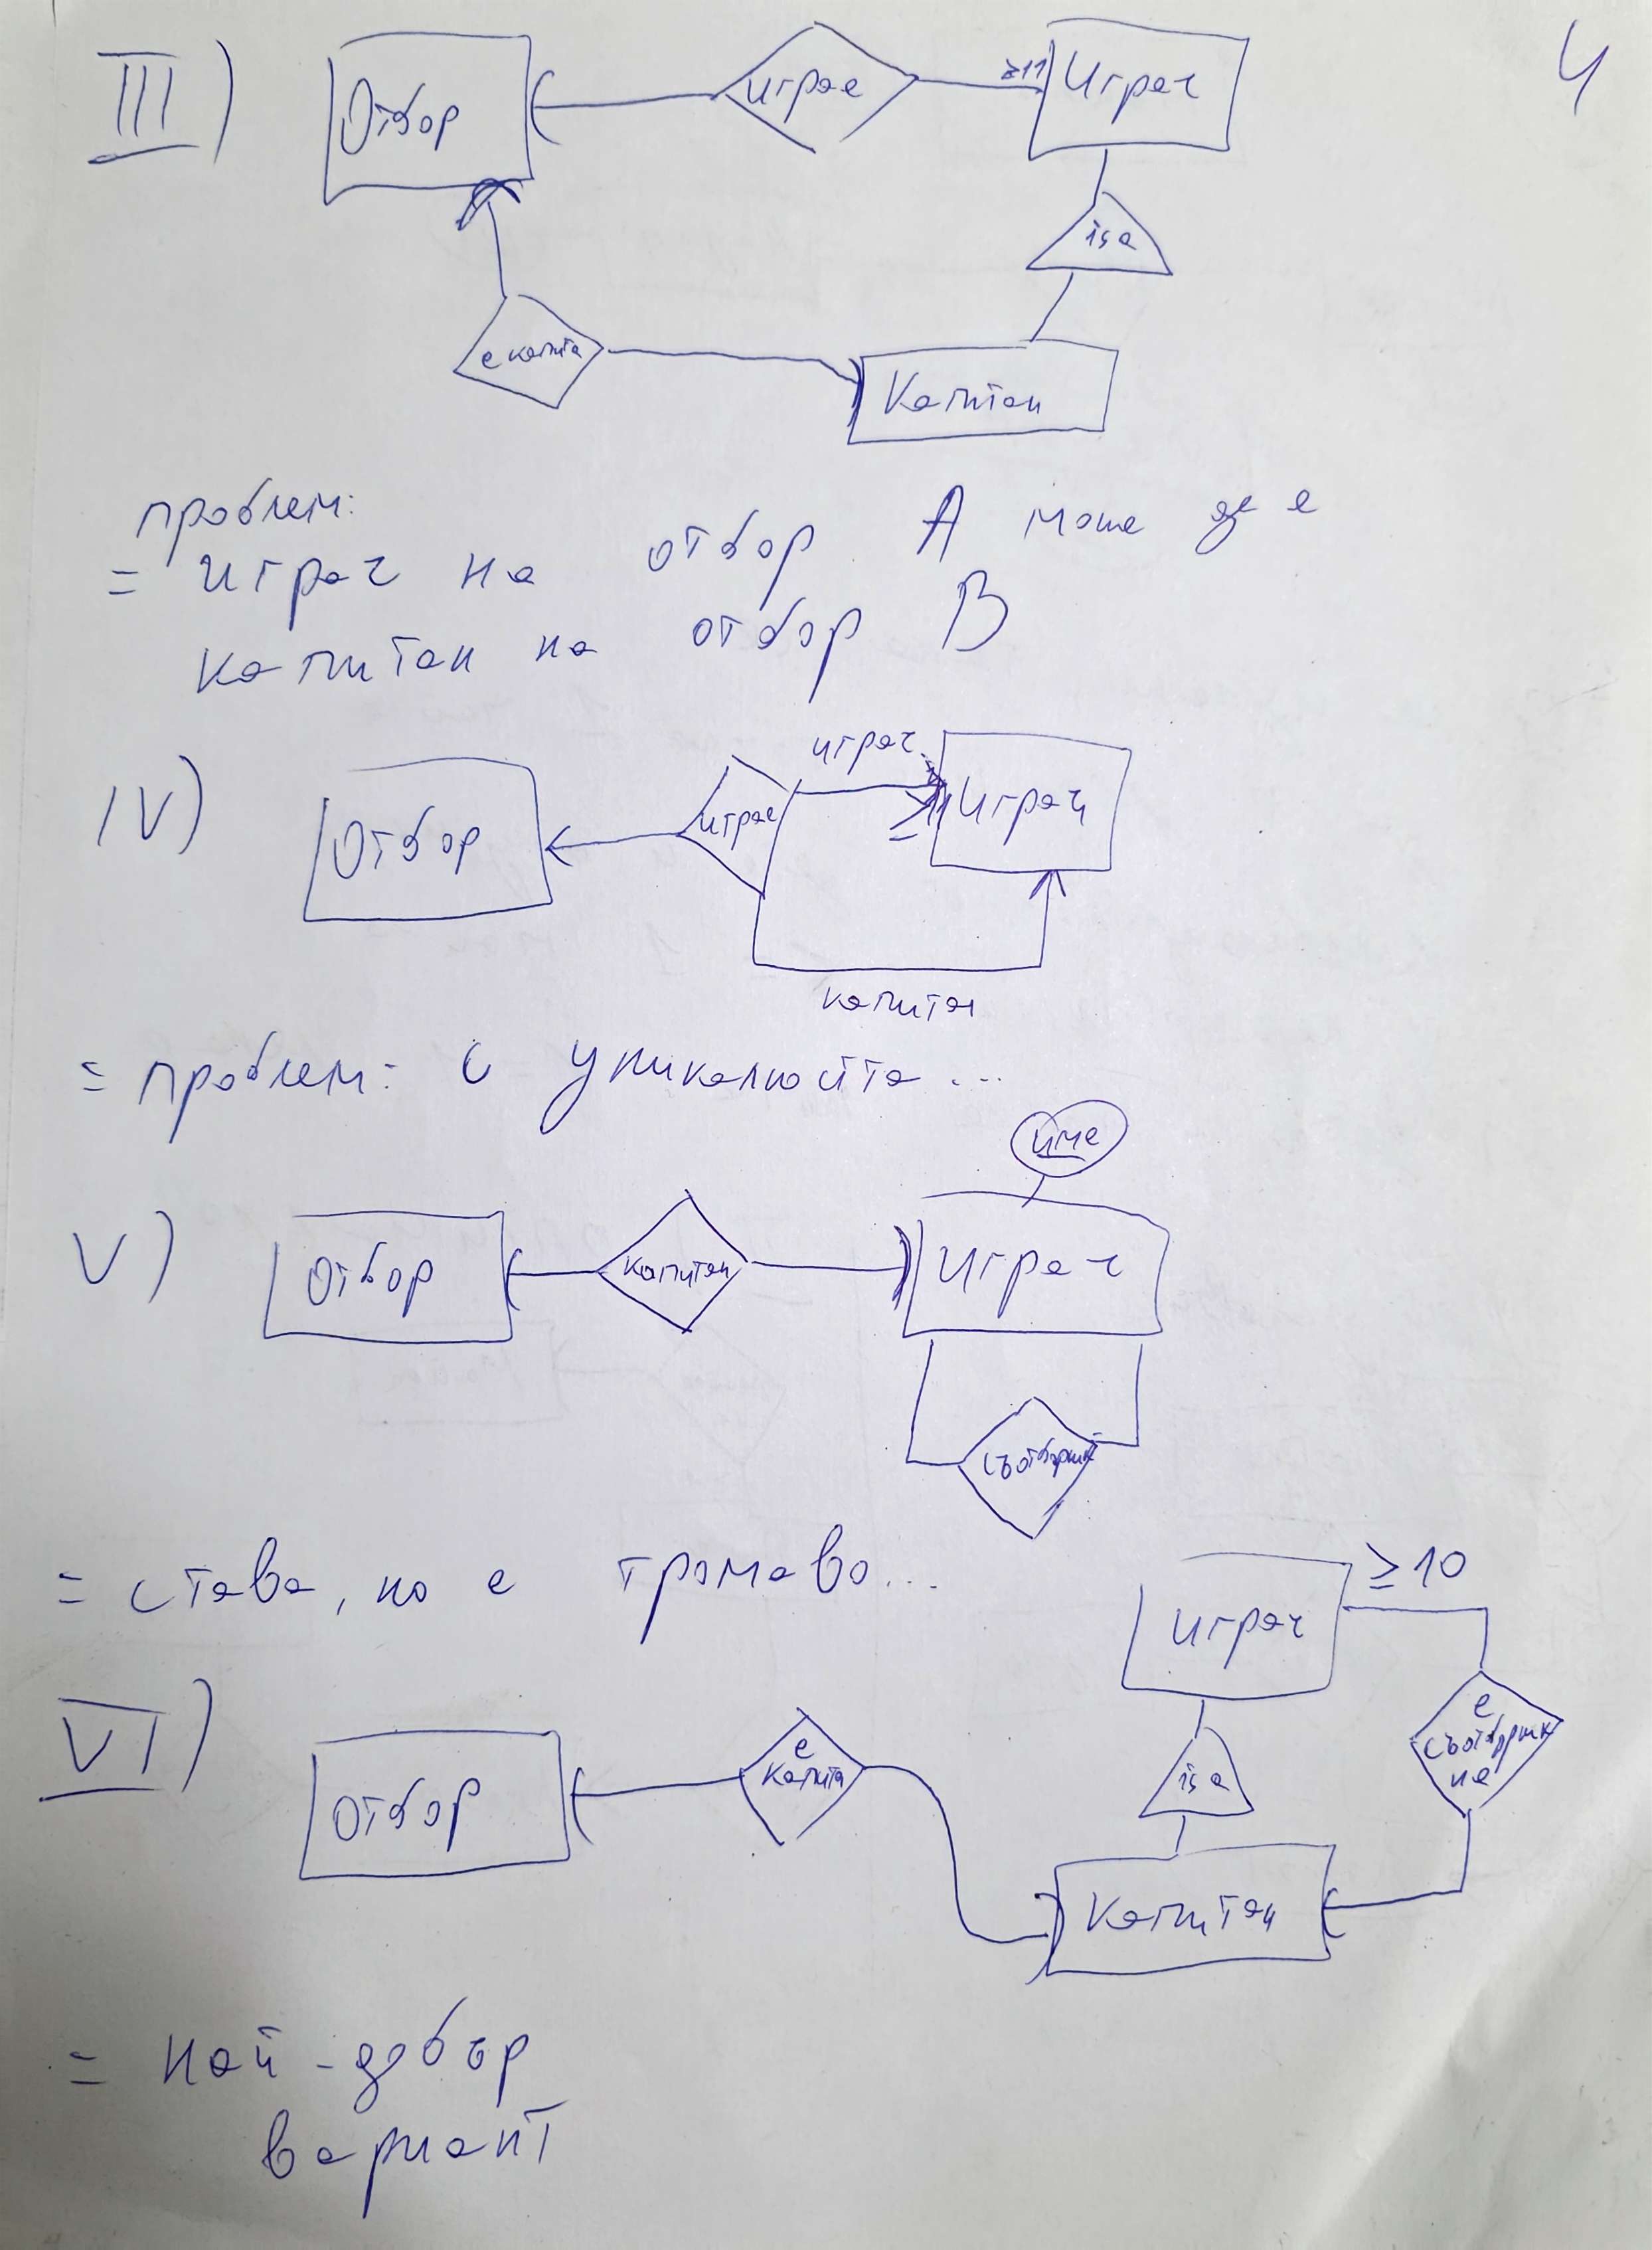 4
III)
Отбор
играе
≥11
Играч
isa
е капита
Капитан
проблем:
= играч на отбор А може да е
капитан на отбор В
IV)
Отбор
играе
играч
Играч
капитан
= проблем: с уникалността...
V)
Отбор
капитан
име
Играч
съотборник
= става, но е тромаво...
VI)
Отбор
е
капита
играч
≥10
isa
е
съотборник
на
Капитан
= най-добър
вариант